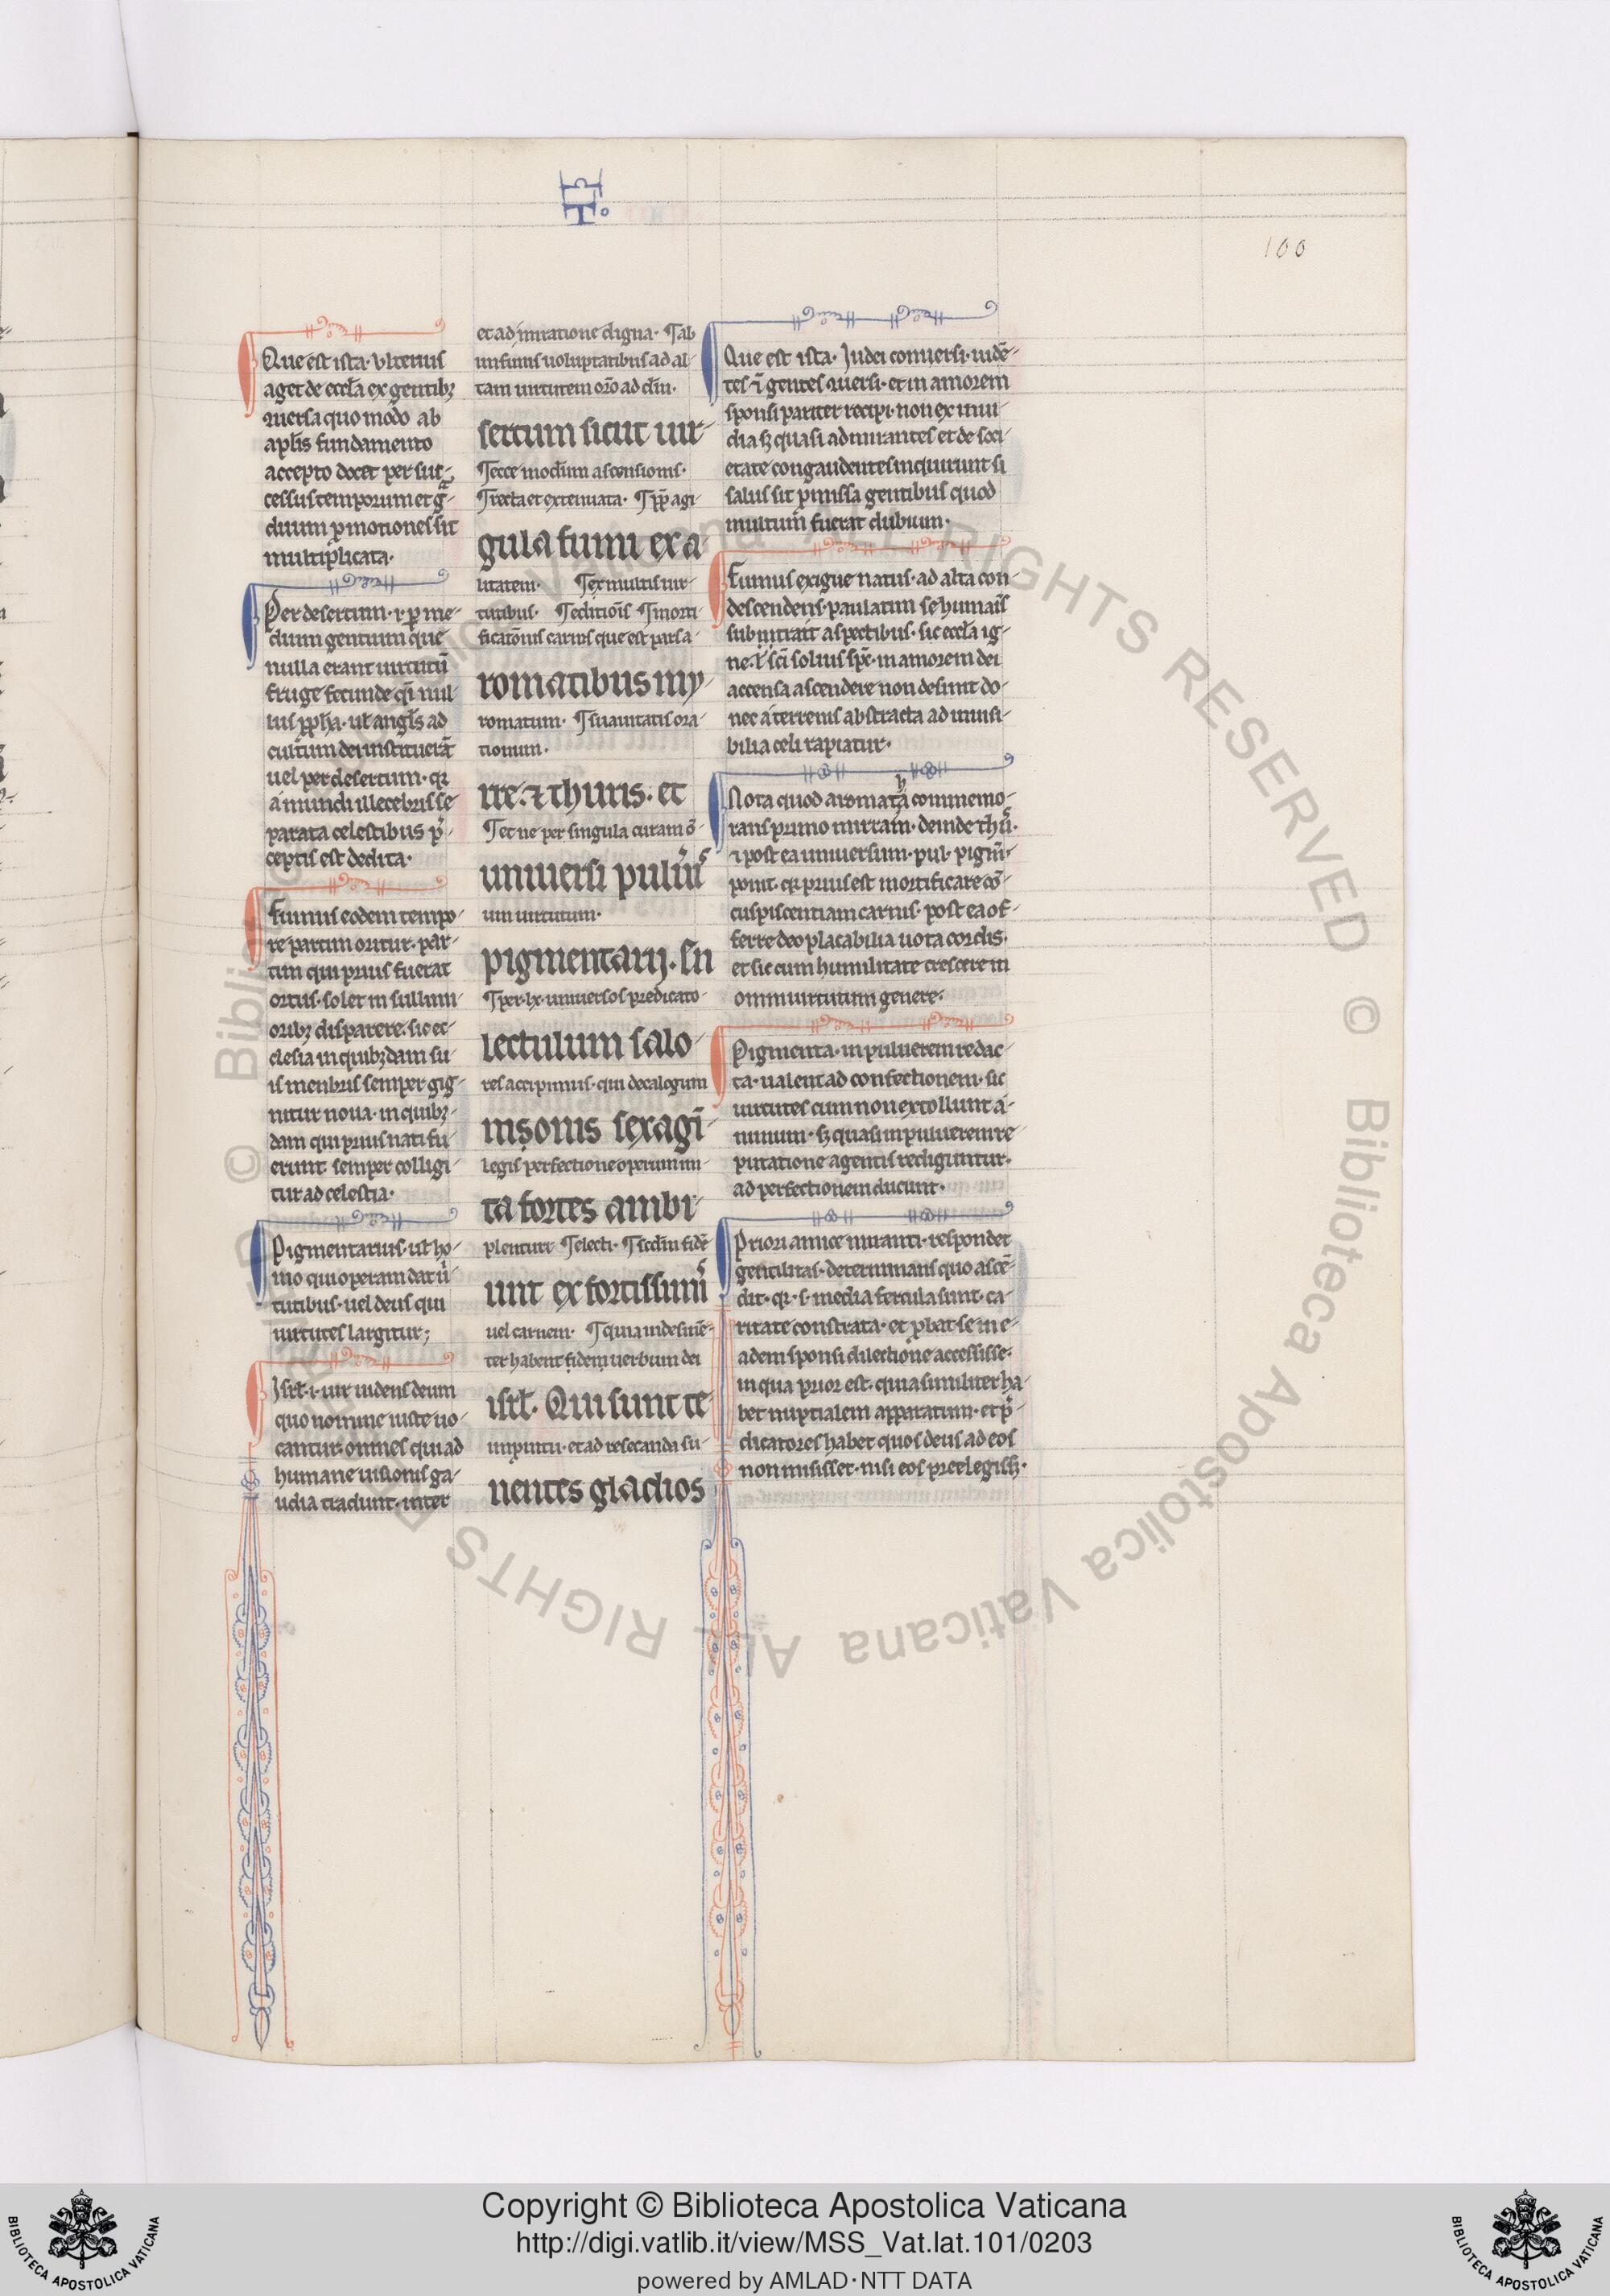 100
Que est ista. Vlterius
aget de eccl̄a ex gentibꝫ
ɔuersa quomodo ab
apl̄is fundamento
accepto docet per suc-
cessus temporum et gᵃ-
duum ꝓmotiones sit
multiplicata.
Per desertum .i. ꝑ me-
dium gentium que
nulla erant uirtutū
fruge fecunde qͥ nul-
lus ꝓph̄a. ul̄ angl̄s ad
cultum dei instituerāt
uel per desertum. qꝛ
a mundi illecebris se-
parata celestibus p̄-
ceptis est dedita.
Fumus eodem tempo-
re partim oritur. par-
tim qui prius fuerat
ortus. solet in sullimi-
oribꝫ disparere. sic ec-
clesia in quibꝫdam su-
is menbris semper gig-
nitur noua. in quibꝫ-
dam qui prius nati fu-
erunt semper colligi-
tur ad celestia.
Pigmentarius. ul̄ ho-
mo qui operam dat uͥ-
tutibus. uel deus qui
uirtutes largitur;
Isrl̄ .i. uir uidens deum
quo nomine iuste uo-
cantur omnes qui ad
humane uisionis ga-
udia tradunt. inter
et admiratione digna. ¶ab
infimis uoluptatibus ad al-
tam uirtutem or̄o ad dm̄.
sertum sicut uir-
¶ecce modum ascensionis.
¶recta et extenuata. ¶ꝓp̄ agi-
gula fumi ex a-
litatem. ¶ex multis uir-
tutibus. ¶editiōis ¶morti-
ficatōnis carnis que est pars a-
romatibus my-
romatum. ¶suauitatis ora-
tionum.
rre. ⁊ thuris. et
¶et ne per singula curam ō-
uniuersi puluͥs
um uirtutum.
pigmentarij. En
¶per .lx. uniuersos predicato-
lectulum salo-
res accipimus. qui decalogum
monis sexagī-
legis perfectione operum im-
ta fortes ambi-
plentur. ¶electi. ¶scdm̄ fidē
unt ex fortissimͥs
uel carnem. ¶quia indesinē-
ter habent fidem uerbum dei
isrl̄. Qui sunt te-
in promptu. et ad resecanda su-
nentes gladios
Que est ista. Iudei conuersi. uidē-
tes ⁊ gentes ɔuersi. et in amorem
sponsi pariter recipi. non ex inui-
dia sꝫ quasi admirantes et de soci-
etate congaudentes inquirunt si
salus sit ꝓmissa gentibus quod
multum fuerat dubium.
Fumus ex igne natus. ad alta con-
descendens. paulatim se humaīs
subintrait aspectibus. sic eccl̄a ig-
ne sc̄i solius sp̄c. in amorem dei
accensa ascendere non desinit do-
nec a terrenis abstracta ad inuisi-
bilia celi rapiatur.
Nota quod aromata h̄ commemo-
rans primo mirram. deinde thꝰ.
⁊ post ea uniuersum. pul. pigm̄.
ponit. qꝛ prius est mortificare cō-
cuspiscentiam carnis. post ea of-
ferre deo placabilia uota cordis.
et sic cum humilitate crescere in
omni uirtutum genere.
Pigmenta. in puluerem redac-
ta. ualent ad confectionem. sic
uirtutes cum non extollunt a-
nimum. sꝫ quasi in puluerem re-
putatione agentis rediguntur.
ad perfectionem ducunt.
Priori amice miranti. respondet
gentilitas. determinans quo ascē-
dit. qꝛ .s. media fercula sunt. ca-
ritate constrata. et ꝓbat se in e-
adem sponsi dilectione accessisse.
in qua prior est. quia similiter ha-
bet nuptialem apparatum. et p̄-
dicatores habet quos deus ad eos
non misisset. nisi eos preelegissꝫ.
© Biblioteca Apostolica Vaticana ALL RIGHTS RESERVED
Copyright © Biblioteca Apostolica Vaticana
http://digi.vatlib.it/view/MSS_Vat.lat.101/0203
powered by AMLAD·NTT DATA
BIBLIOTECA APOSTOLICA VATICANA
BIBLIOTECA APOSTOLICA VATICANA